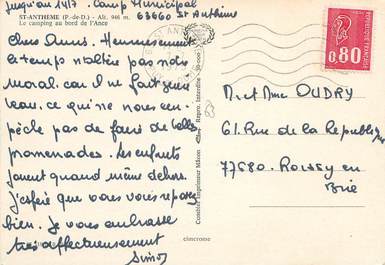 Jusqu'au 14/7 Camp Municipal
63660 St Anthème
ST-ANTHEME (P.-de-D.) - Alt. 946 m.
Le camping au bord de l'Ance
Chers Amis. Heureusement
le temps n'altère pas notre
moral. car il ne fait guère
beau. ce qui ne nous em-
pêche pas de faire de belles
promenades. Les enfants
jouent quand même dehors.
j'espère que vous vous reposez
bien. Je vous embrasse
très affectueusement
cimcrome
Combier Imprimeur Mâcon
Repro. Interdite
REPUBLIQUE FRANÇAISE
0,80
M. et Mme OUDRY
61. Rue de la République
77680. ROISSY en
Brie